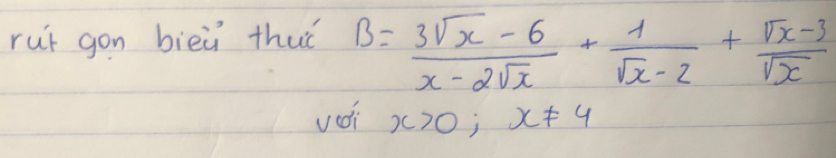 rút gọn biểu thức B = \frac{3\sqrt{x} - 6}{x - 2\sqrt{x}} + \frac{1}{\sqrt{x} - 2} + \frac{\sqrt{x} - 3}{\sqrt{x}}
với x>0 ; x ≠ 4